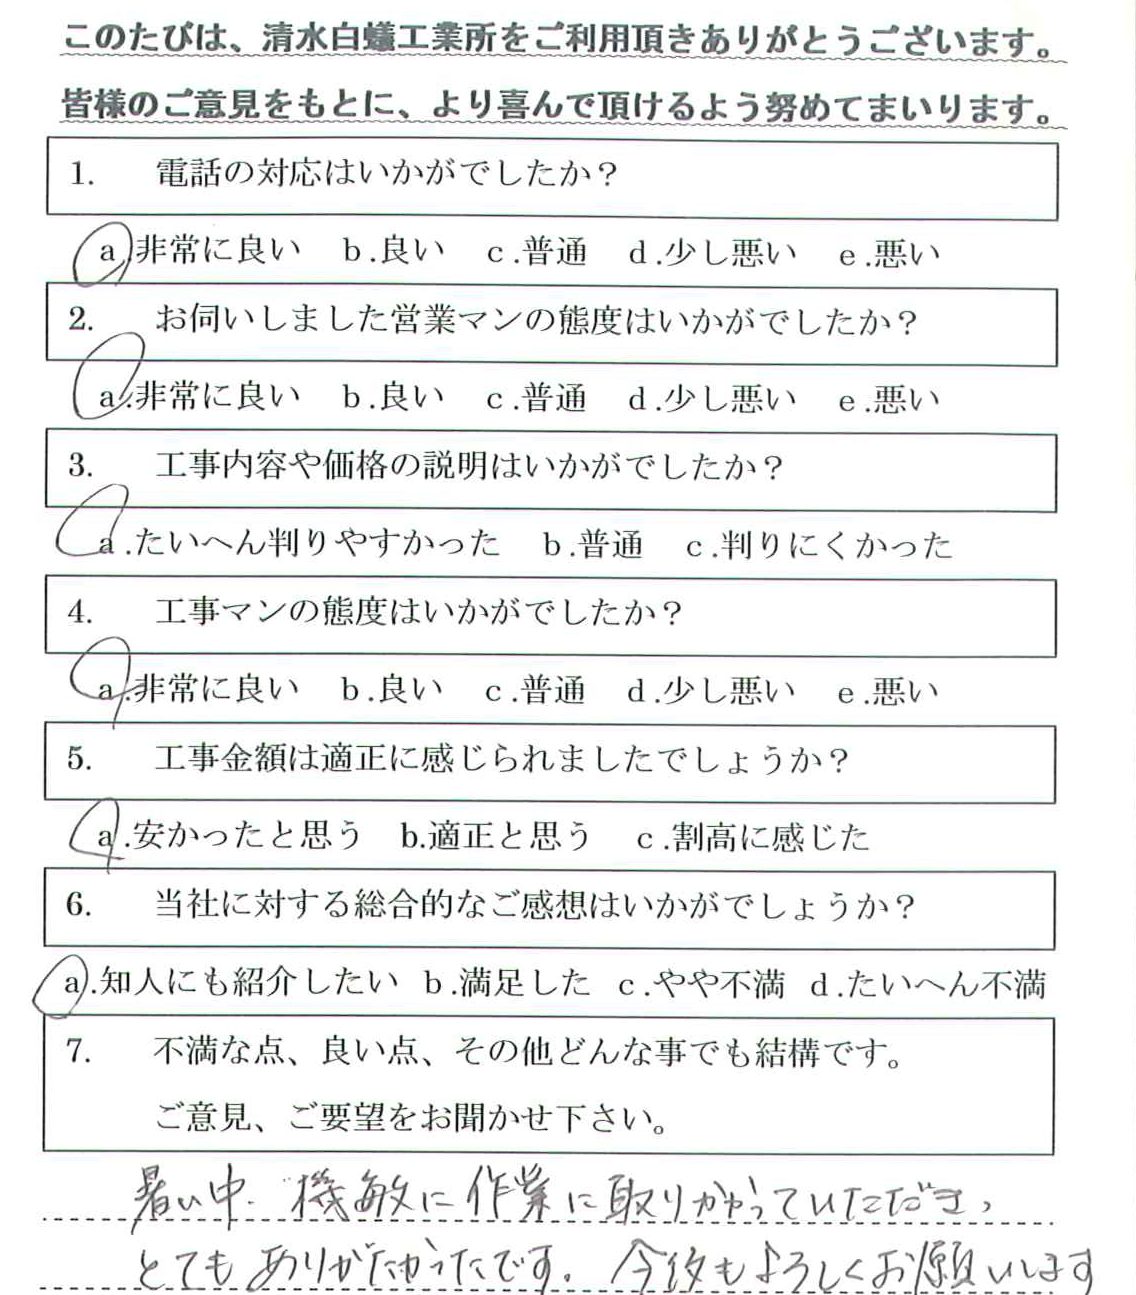 このたびは、清水白蟻工業所をご利用頂きありがとうございます。
皆様のご意見をもとに、より喜んで頂けるよう努めてまいります。
1.　電話の対応はいかがでしたか？
a.非常に良い　b.良い　c.普通　d.少し悪い　e.悪い
2.　お伺いしました営業マンの態度はいかがでしたか？
a.非常に良い　b.良い　c.普通　d.少し悪い　e.悪い
3.　工事内容や価格の説明はいかがでしたか？
a.たいへん判りやすかった　b.普通　c.判りにくかった
4.　工事マンの態度はいかがでしたか？
a.非常に良い　b.良い　c.普通　d.少し悪い　e.悪い
5.　工事金額は適正に感じられましたでしょうか？
a.安かったと思う　b.適正と思う　c.割高に感じた
6.　当社に対する総合的なご感想はいかがでしょうか？
a.知人にも紹介したい　b.満足した　c.やや不満　d.たいへん不満
7.　不満な点、良い点、その他どんな事でも結構です。
ご意見、ご要望をお聞かせ下さい。
暑い中、機敏に作業に取りかかっていただき、
とてもありがたかったです。今後もよろしくお願いします